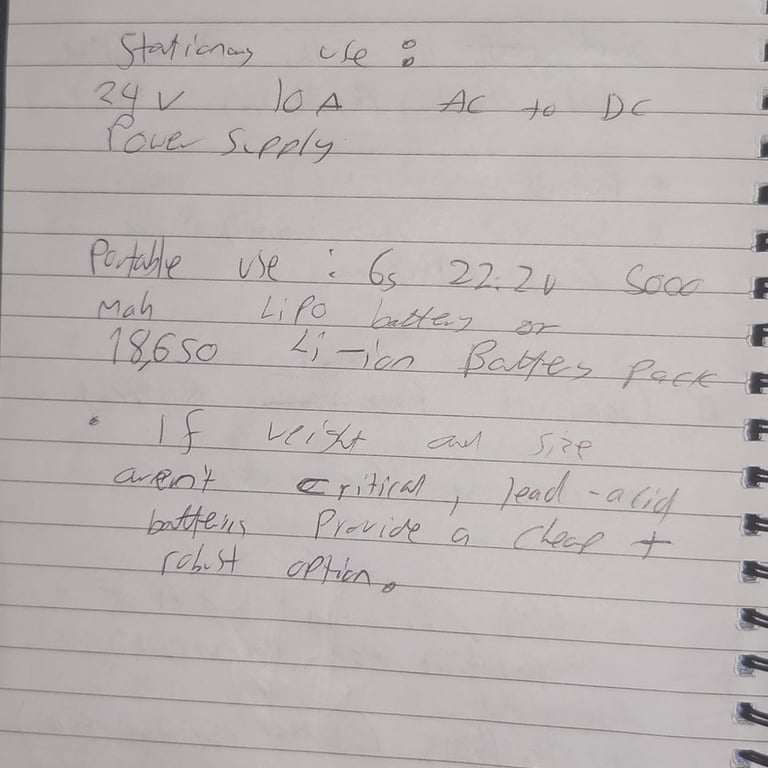 Stationary use :
24 V 10 A AC to DC
Power Supply
Portable use : 6s 22.2v 5000
Mah LiPO battery or
18,650 Li-ion Battery Pack
• If weight and size
aren't critical, lead-acid
batteries Provide a cheap +
robust option.